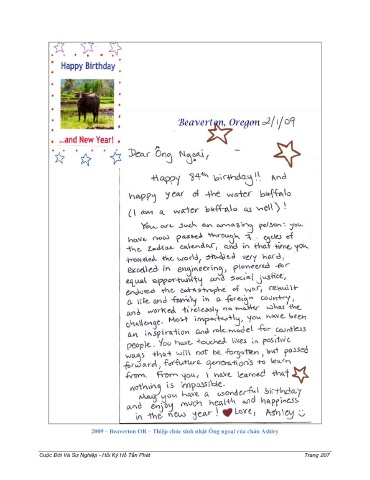 Happy Birthday
...and New Year!
Beaverton, Oregon 2/1/09
Dear Ông Ngoại,
Happy 84th birthday!! And
happy year of the water buffalo
(I am a water buffalo as well)!
You are such an amazing person: you
have now passed through 7 cycles of
the Zodiac calendar, and in that time you
traveled the world, studied very hard,
excelled in engineering, pioneered for
equal opportunity and social justice,
endured the catastrophe of war, rebuilt
a life and family in a foreign country,
and worked tirelessly no matter what the
challenge. Most importantly, you have been
an inspiration and role model for countless
people. You have touched lives in positive
ways that will not be forgotten, but passed
forward, for future generations to learn
from. From you, I have learned that
nothing is impossible.
May you have a wonderful birthday
and enjoy much health and happiness
in the new year! Love, Ashley
2009 – Beaverton OR – Thiệp chúc sinh nhật Ông ngoại của cháu Ashley
Cuộc Đời Và Sự Nghiệp - Hồi Ký Hồ Tấn Phát Trang 207